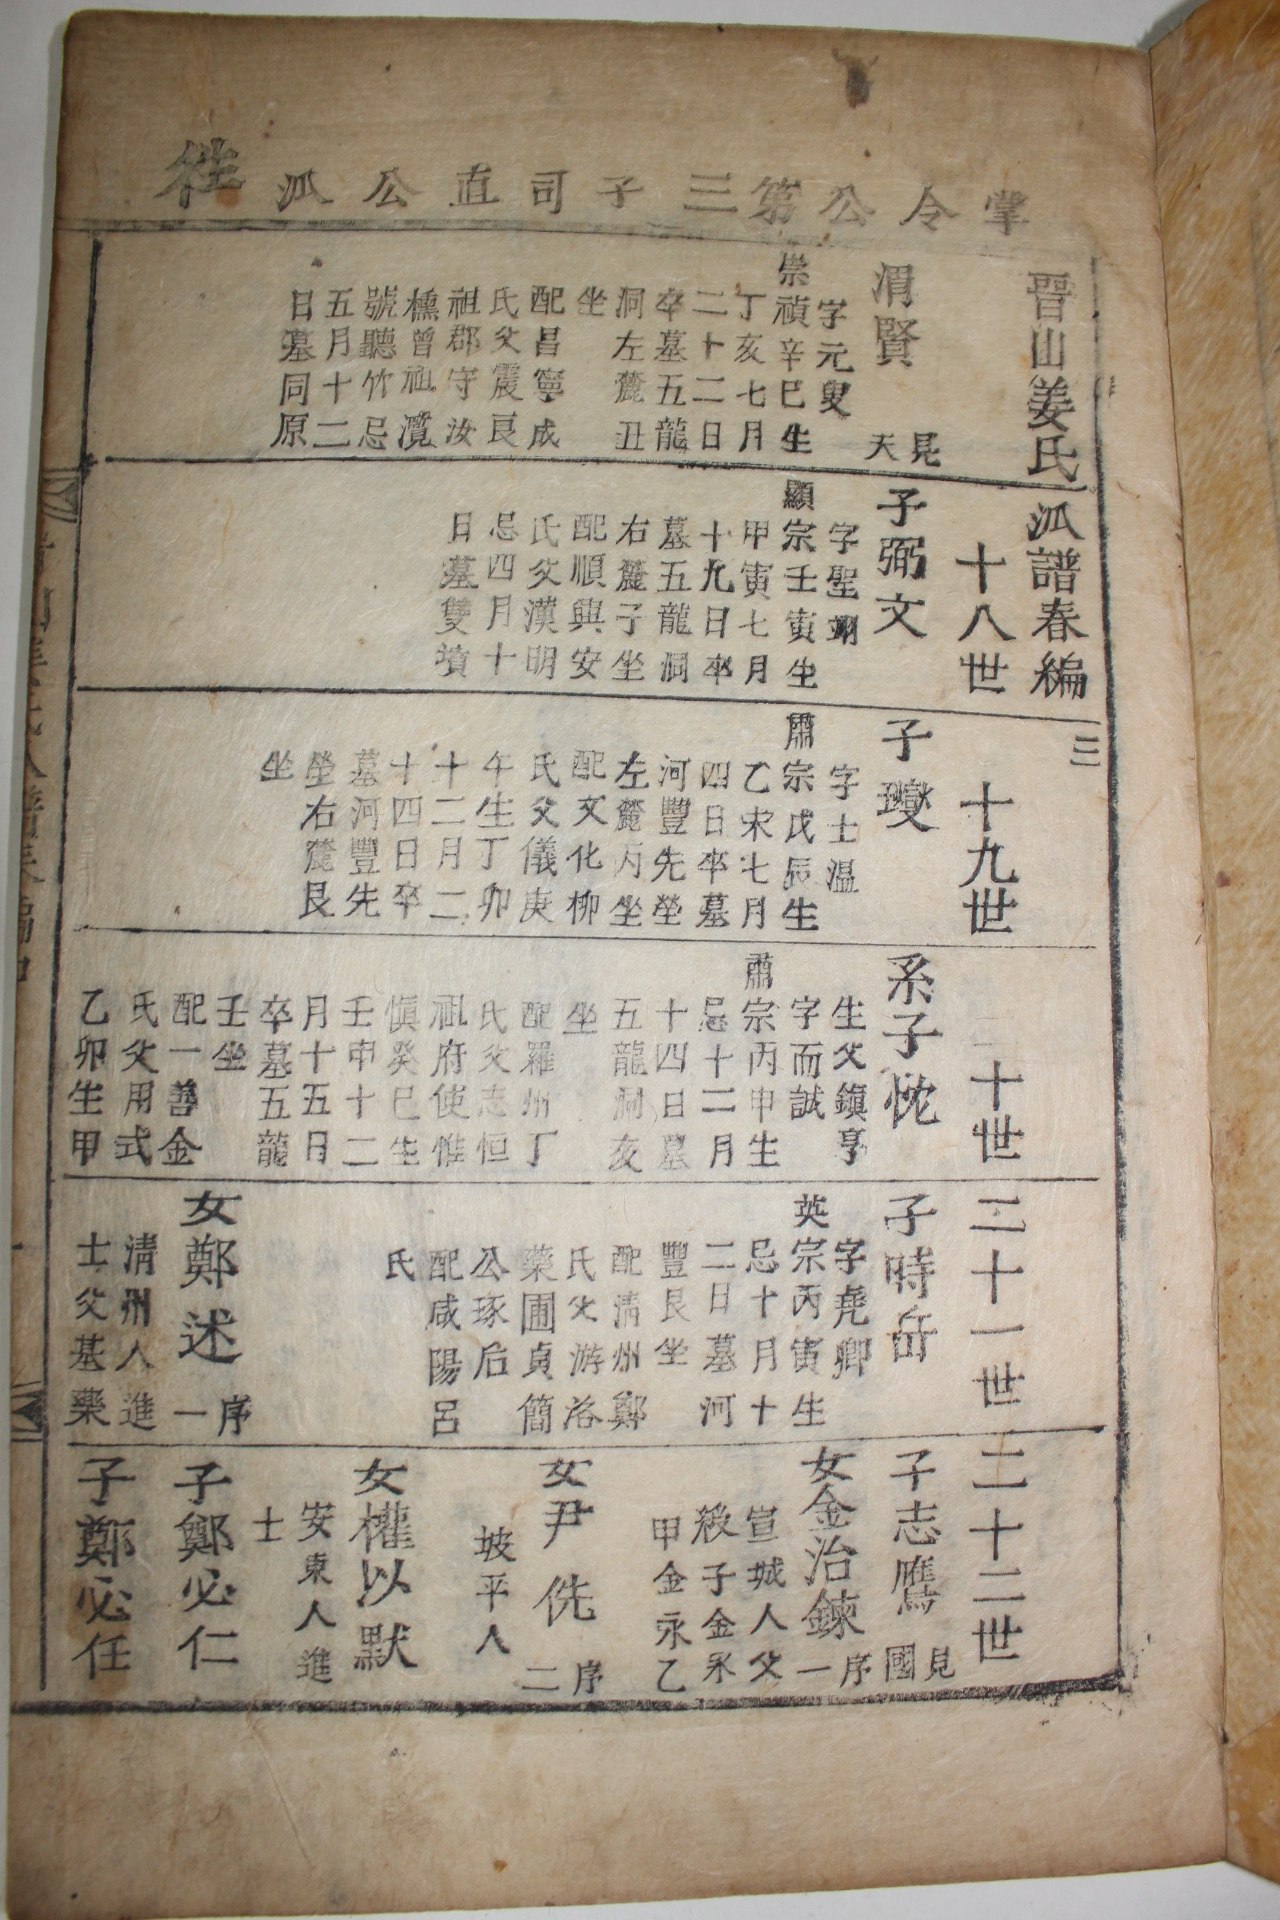 掌令公第三子司直公派
晋山姜氏派譜春編三
渭賢
見天
字元叟
崇禎辛巳生
丁亥七月
二十二日
卒墓五龍
洞左麓丑
坐
配昌寧成
氏父震艮
祖郡守汝
櫄曾祖濶
號聽竹忌
五月十二
日墓同原
十八世
子弼文
字聖翊
顯宗壬寅生
甲寅七月
十九日卒
墓五龍洞
右麓子坐
配順興安
氏父漢明
忌四月十
日墓雙墳
十九世
子㻱
字士溫
肅宗戊辰生
乙未七月
四日卒墓
河豐先塋
左麓丙坐
配文化柳
氏父儀庚
午生丁卯
十二月二
十四日卒
墓河豐先
塋右麓艮
坐
二十世
系子忱
生父鎭亨
字而誠
肅宗丙申生
忌十二月
十四日墓
五龍洞亥
坐
配羅州丁
氏父志恒
祖府使惟
愼癸巳生
壬申十二
月十五日
卒墓五龍
壬坐
配一善金
氏父用式
乙卯生甲
二十一世
子時岳
字堯卿
英宗丙寅生
忌十月十
二日墓河
豐艮坐
配淸州鄭
氏父游洛
藥圃貞簡
公琢后
配咸陽呂
氏
女鄭述
序一
淸州人進
士父基樂
二十二世
子志鷹
見國
女金治鍊
序一
宣城人父
㱾子金永
甲金永乙
女尹侁
序二
坡平人
女權以默
安東人進
士
子鄭必仁
子鄭必任